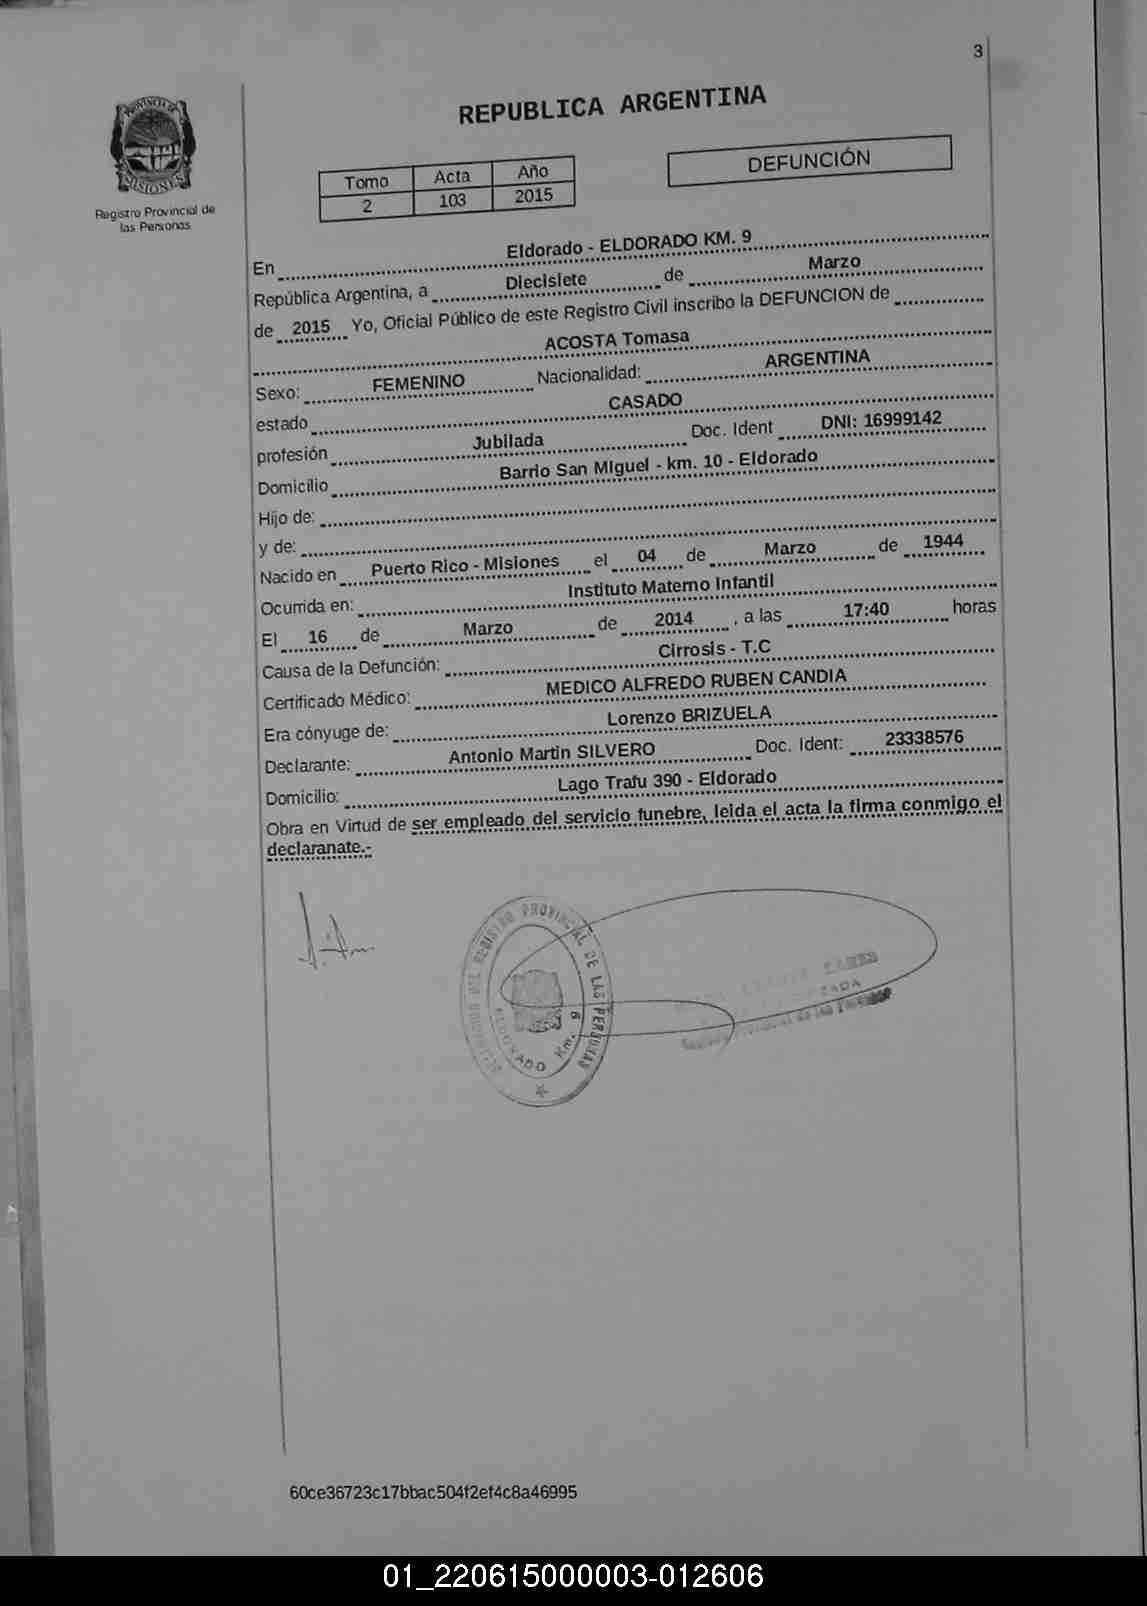 3
PROVINCIA DE
MISIONES
Registro Provincial de
las Personas
REPUBLICA ARGENTINA
Tomo Acta Año
2 103 2015
DEFUNCIÓN
En Eldorado - ELDORADO KM. 9
República Argentina, a Diecisiete de Marzo
de 2015 Yo, Oficial Público de este Registro Civil inscribo la DEFUNCION de
ACOSTA Tomasa
Sexo: FEMENINO Nacionalidad: ARGENTINA
estado CASADO
profesión Jubilada Doc. Ident DNI: 16999142
Domicilio Barrio San Miguel - km. 10 - Eldorado
Hijo de:
y de:
Nacido en Puerto Rico - Misiones el 04 de Marzo de 1944
Ocurrida en: Instituto Materno Infantil
El 16 de Marzo de 2014 , a las 17:40 horas
Causa de la Defunción: Cirrosis - T.C
Certificado Médico: MEDICO ALFREDO RUBEN CANDIA
Era cónyuge de: Lorenzo BRIZUELA
Declarante: Antonio Martin SILVERO Doc. Ident: 23338576
Domicilio: Lago Trafu 390 - Eldorado
Obra en Virtud de ser empleado del servicio funebre, leida el acta la firma conmigo el
declaranate.-
REGISTRO PROVINCIAL DE LAS PERSONAS
ELDORADO Km. 9
Provincial de las Personas
60ce36723c17bbac504f2ef4c8a46995
01_220615000003-012606